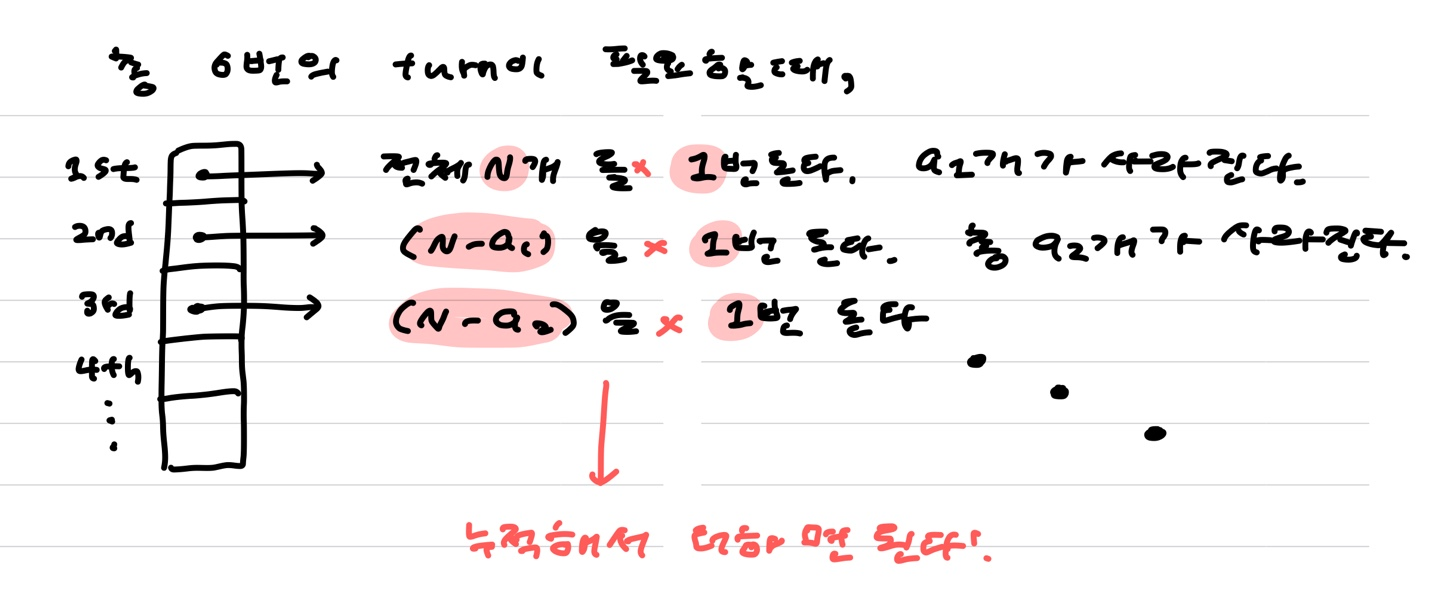 총 6번의 turn이 필요할때,
1st 전체 N개 를 × 1번 돈다. a1개가 사라진다.
2nd (N-a1) 을 × 1번 돈다. 총 a2개가 사라진다.
3rd (N-a2) 을 × 1번 돈다
4th
누적해서 더하면 된다!